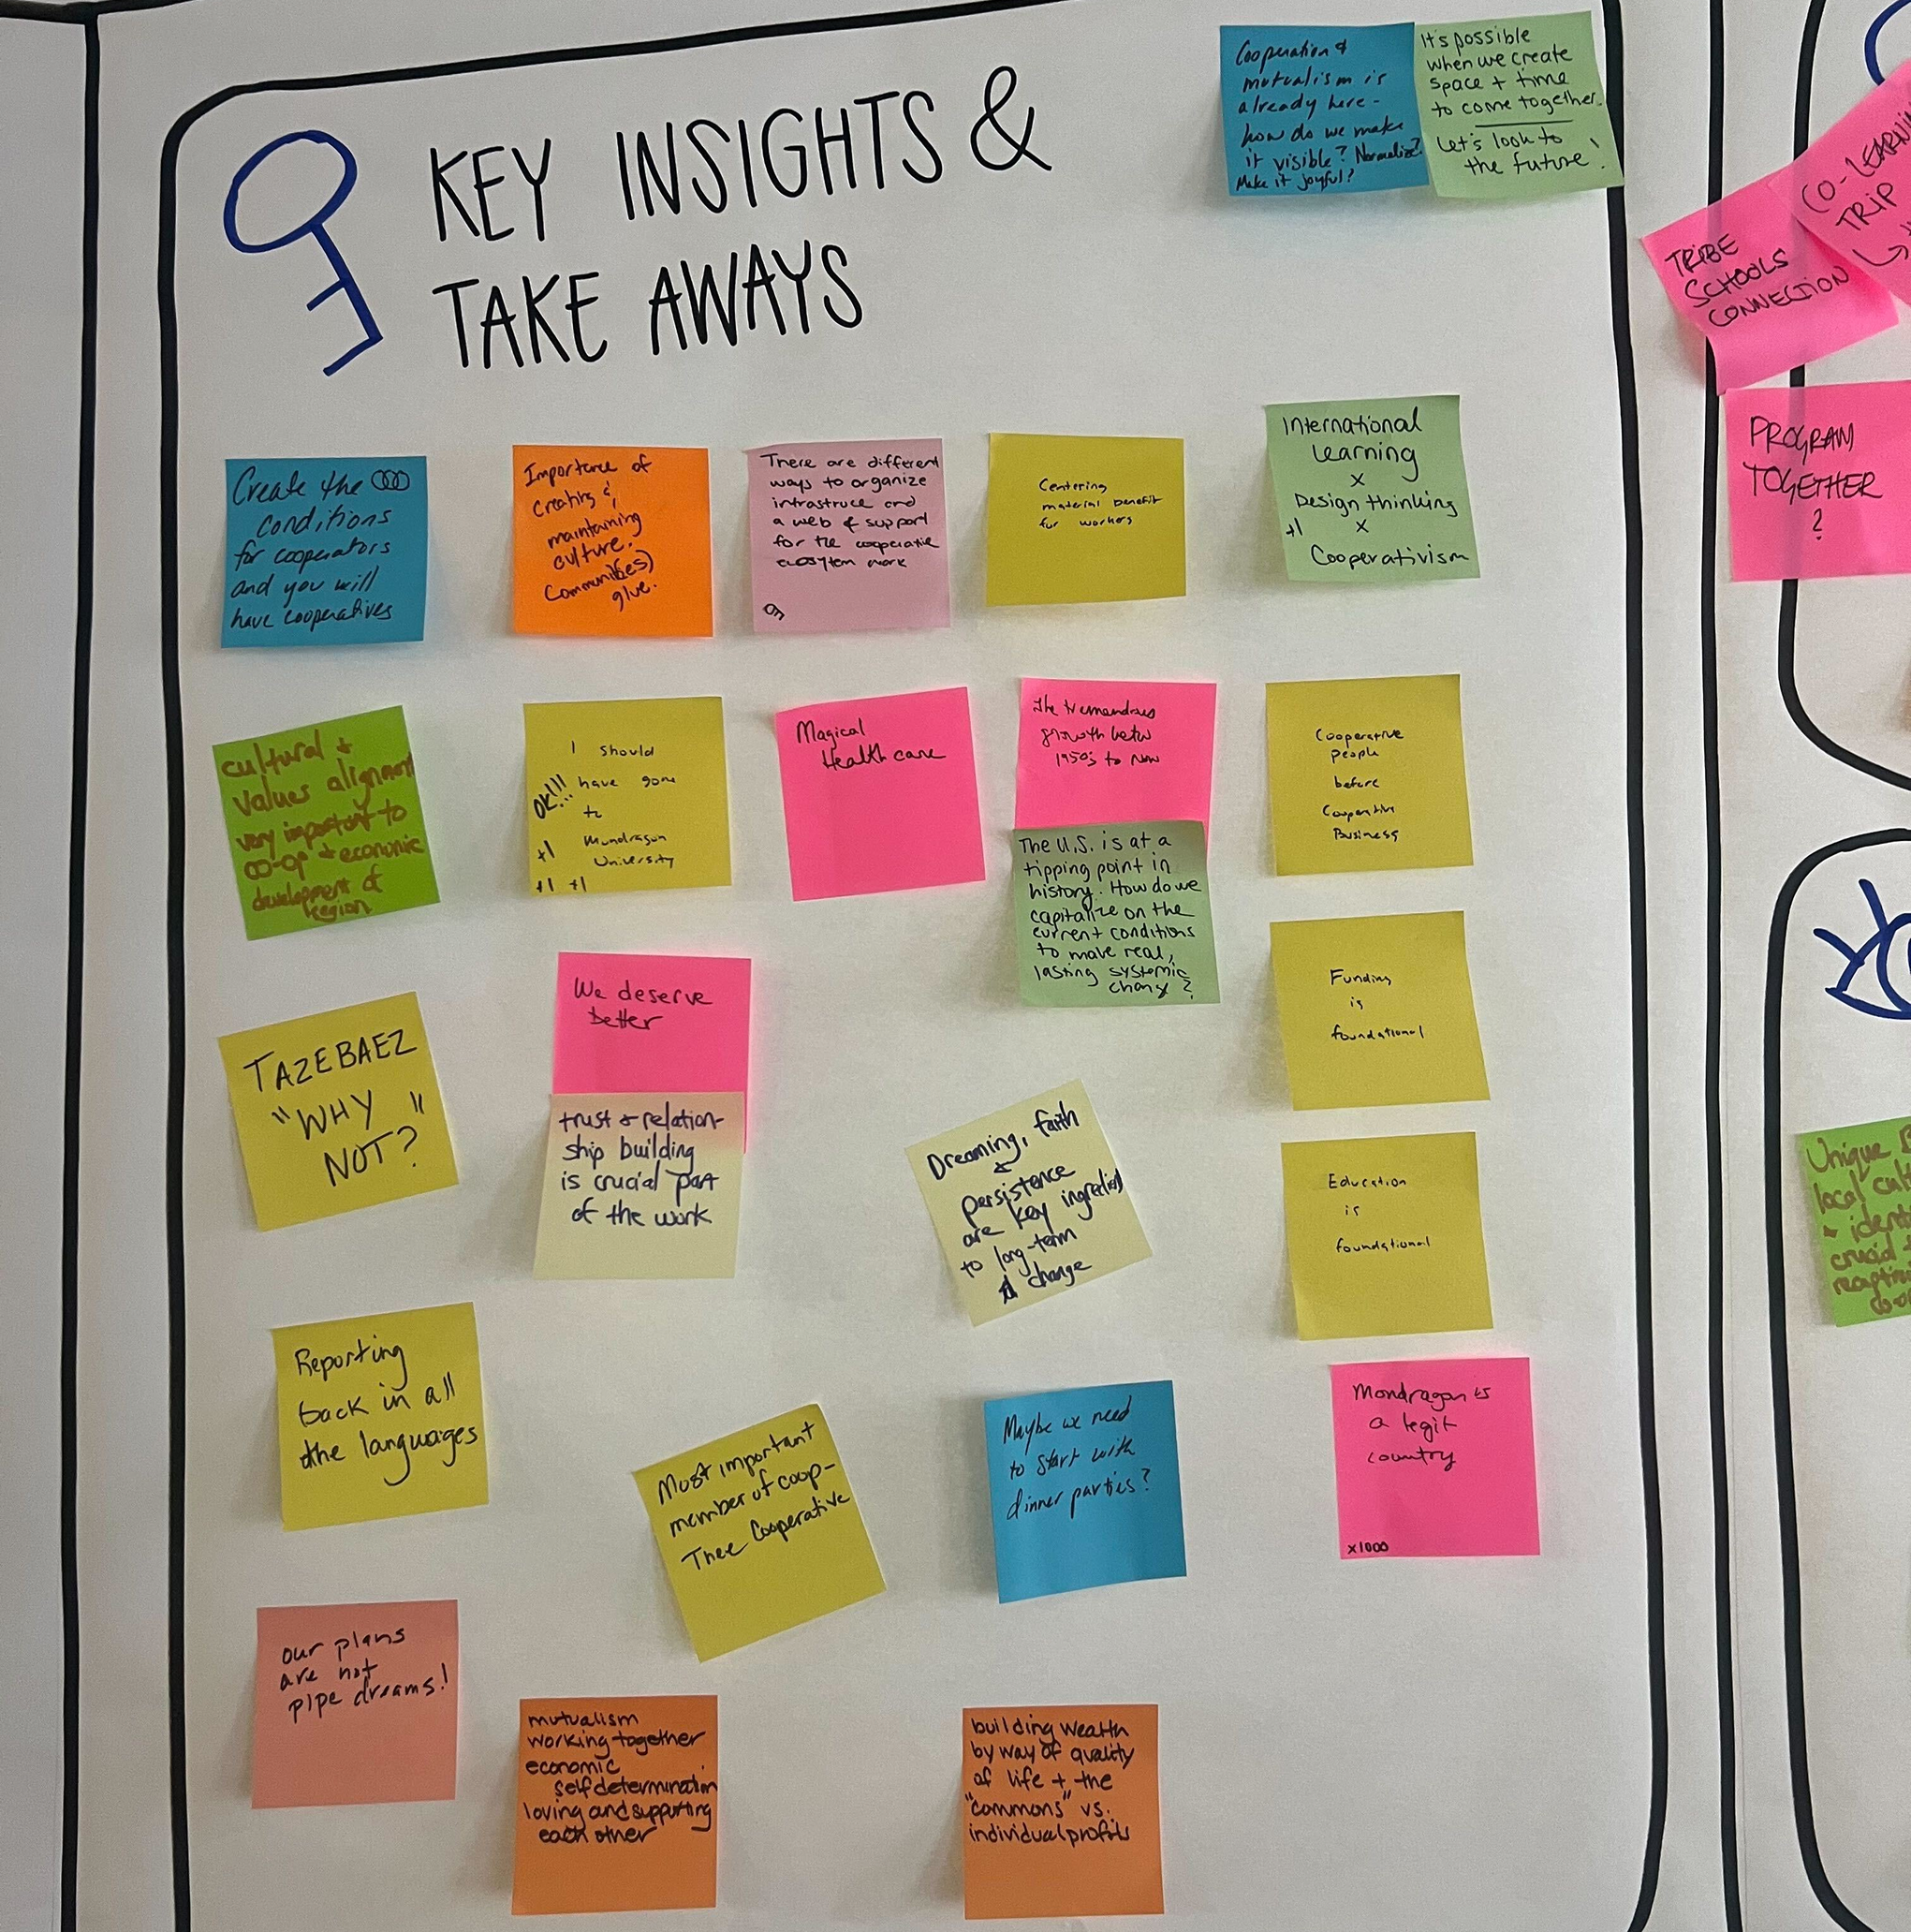 KEY INSIGHTS &
TAKE AWAYS
Cooperation &
mutualism is
already here -
how do we make
it visible? Normalize?
Make it joyful?
It's possible
when we create
space + time
to come together.
Let's look to
the future!
Create the
conditions
for cooperators
and you will
have cooperatives
Importance of
creating &
maintaining
culture.
Communit(ies)
glue.
There are different
ways to organize
infrastruce and
a web of support
for the cooperatie
ecosytem work
Centering
material benefit
for workers
International
Learning
x
Design thinking
+1 x
Cooperativism
cultural +
values alignment
very important to
co-op + economic
development of
region
I should
OK!!! have gone
to
+1 Mundragon
University
+1 +1
Magical
Health care
The tremendous
growth betw
1950's to now
The U.S. is at a
tipping point in
history. How do we
capitalize on the
current conditions
to make real,
lasting systemic
change?
Cooperative
people
before
Cooperative
Business
TAZEBAEZ
"WHY
NOT?"
We deserve
better
trust + relation-
ship building
is crucial part
of the work
Dreaming, faith
+
persistence
are key ingredients
to long-term
change
Funding
is
foundational
Education
is
foundational
Reporting
back in all
the languages
Most important
member of coop-
Thee Cooperative
Maybe we need
to start with
dinner parties?
Mondragon is
a legit
country
x1000
our plans
are not
pipe dreams!
mutualism
working together
economic
self determination
loving and supporting
each other
building wealth
by way of quality
of life + the
"commons" vs.
individual profits
CO-LEARNIN
TRIP
TRIBE
SCHOOLS
CONNECTION
PROGRAM
TOGETHER
?
Unique
local cul
+ ident
crucial